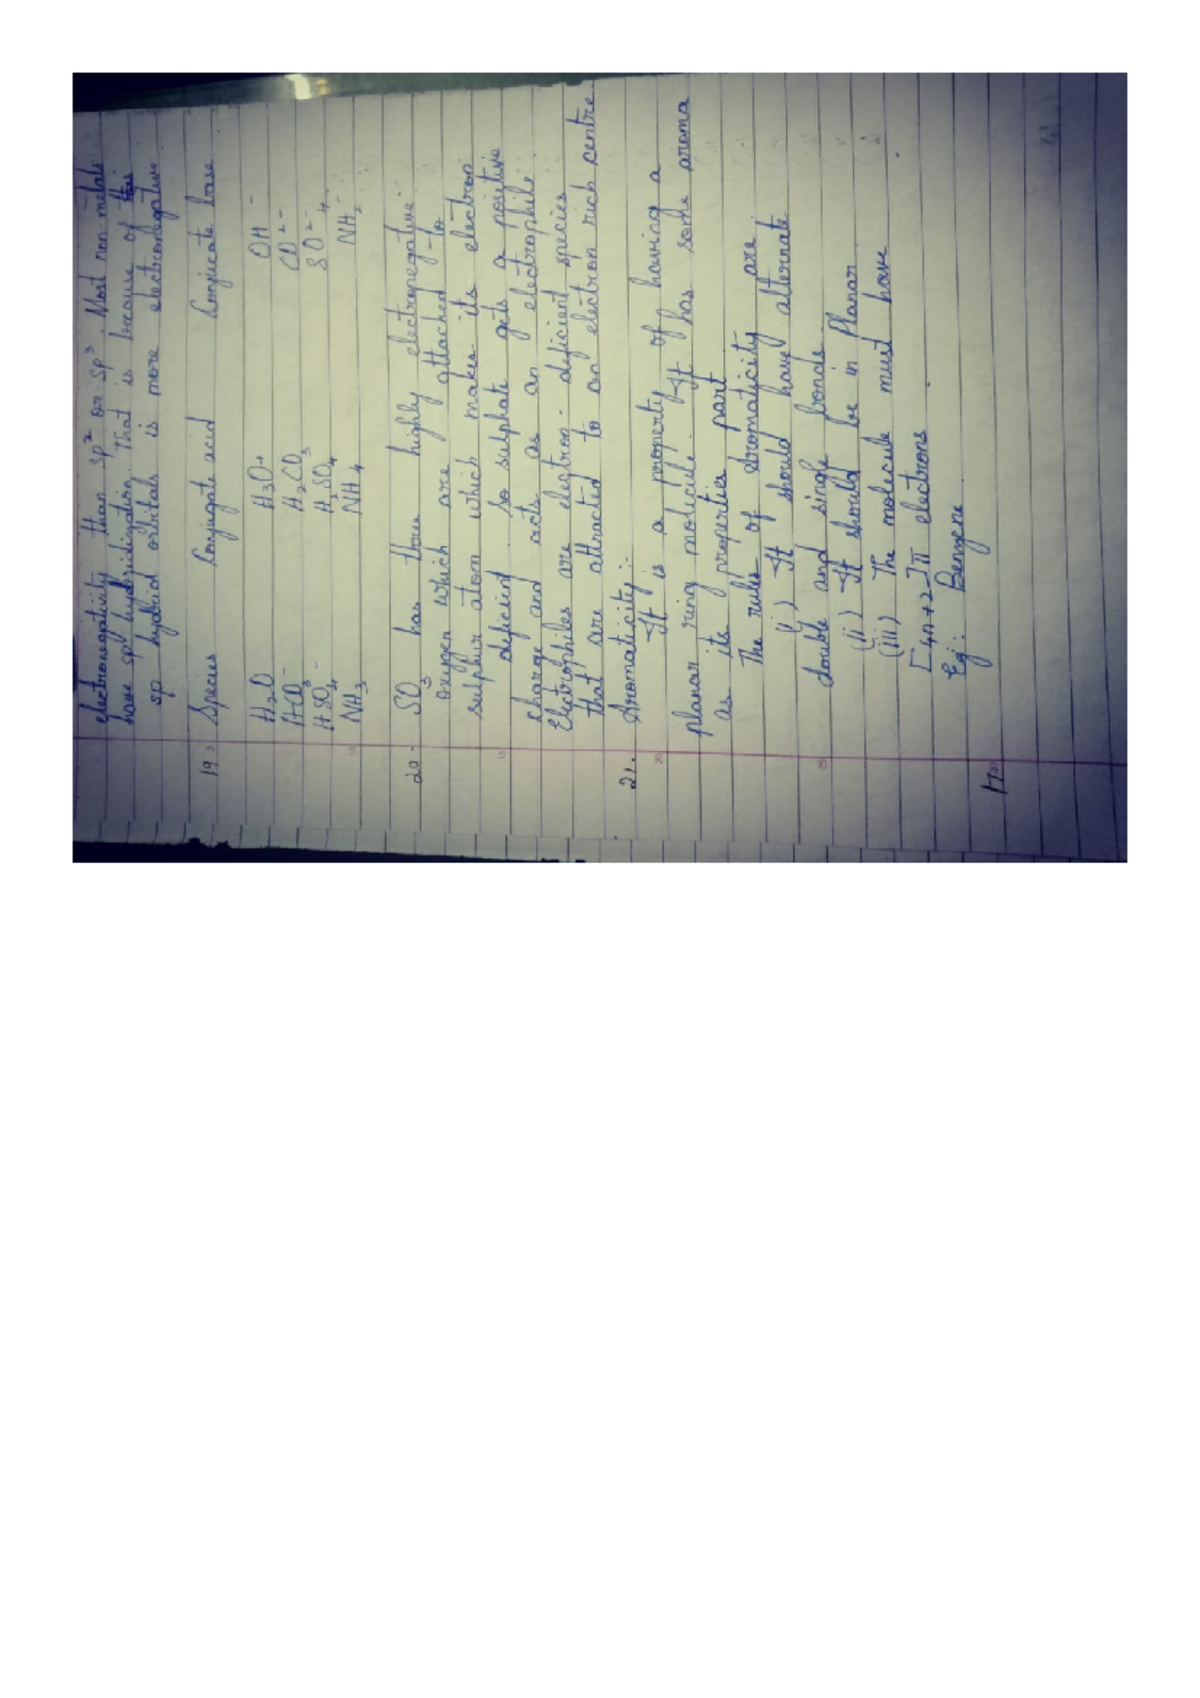 electronegativity than sp² or sp³. Most non-metals
have sp hybridization. That is because of this
sp hybrid orbitals is more electronegative
19. Species Conjugate acid Conjucate base
H₂O H₃O⁺ OH⁻
HCO₃⁻ H₂CO₃ CO²⁻
HSO₄⁻ H₂SO₄ SO₄²⁻
NH₃ NH₄ NH₂⁻
20. SO₃ has three highly electronegative
oxygen which are attached to
sulphur atom which makes its electron
deficient. so sulphate gets a positive
charge and acts as an electrophile.
Electrophiles are electron-deficient species
that are attracted to an electron rich centre.
21. Aromaticity:-
It is a property of having a
planar ring molicule. It has some aroma
as its properties part
The rules of Aromaticity are
(i) It should have alternate
double and single bonds.
(ii) It should be in Planar
(iii) The molecule must have
[4n+2]π electrons
Eg: Benzene
17.